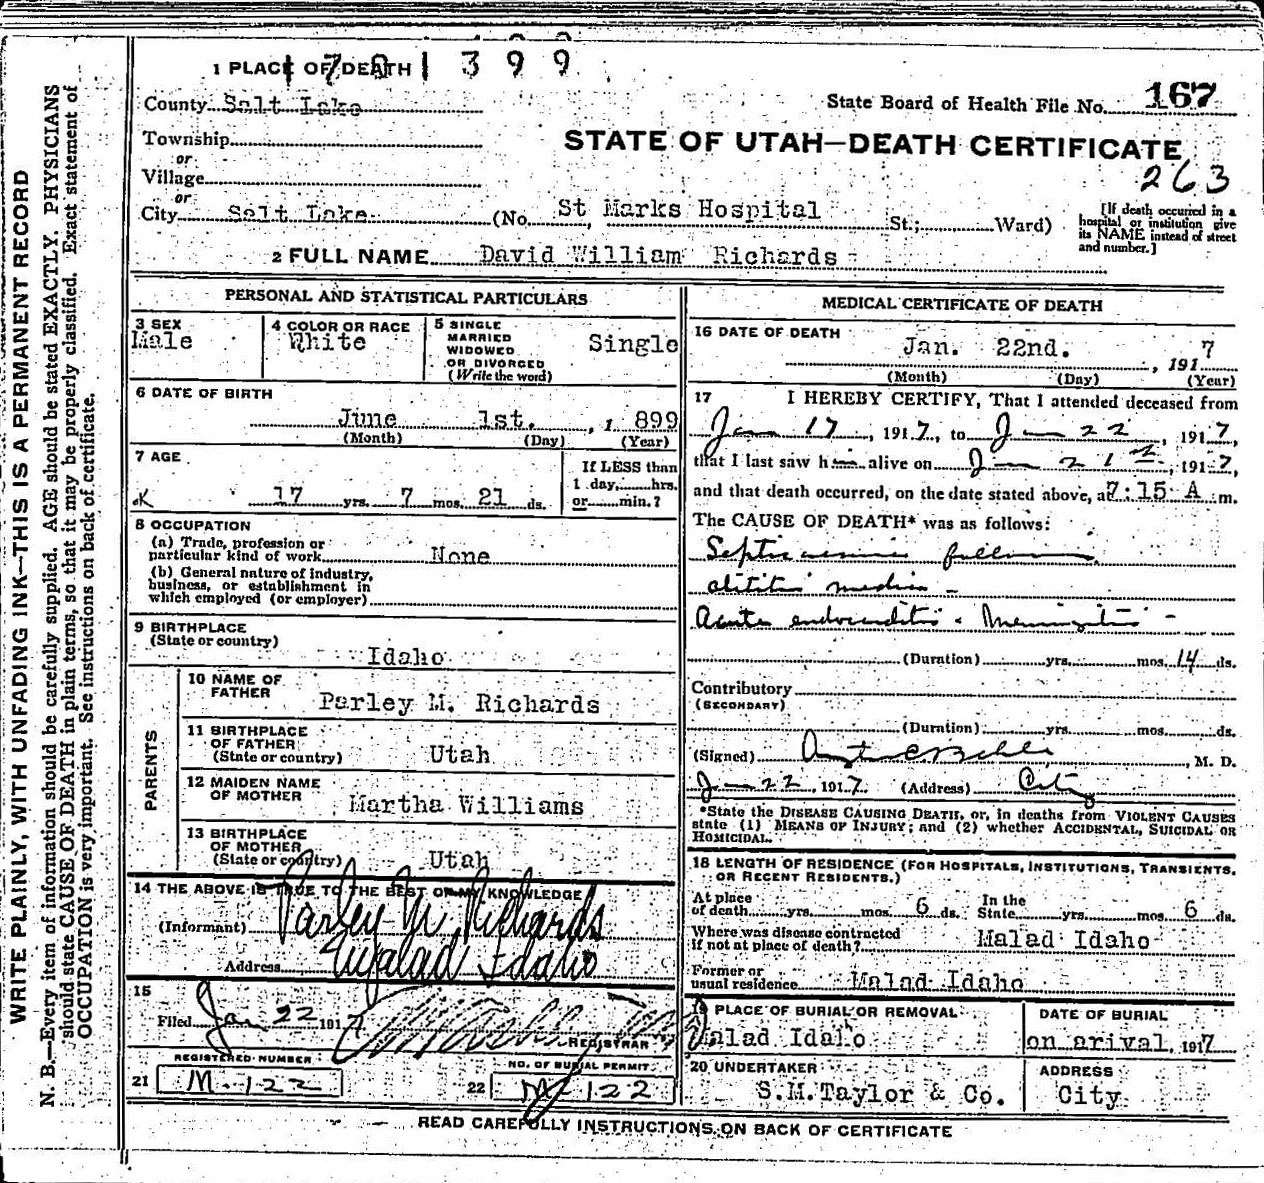 1 PLACE OF DEATH 1701399
County Salt Lake
State Board of Health File No. 167
Township
or
Village
or
STATE OF UTAH—DEATH CERTIFICATE
263
City Salt Lake (No. St Marks Hospital St.; Ward)
[If death occurred in a hospital or institution give its NAME instead of street and number.]
2 FULL NAME David William Richards
WRITE PLAINLY, WITH UNFADING INK—THIS IS A PERMANENT RECORD
N. B.—Every item of information should be carefully supplied. AGE should be stated EXACTLY. PHYSICIANS
should state CAUSE OF DEATH in plain terms, so that it may be properly classified. Exact statement of
OCCUPATION is very important. See instructions on back of certificate.
PERSONAL AND STATISTICAL PARTICULARS
3 SEX
Male
4 COLOR OR RACE
White
5 SINGLE
MARRIED
WIDOWED
OR DIVORCED
(Write the word)
Single
6 DATE OF BIRTH
June 1st. , 1 899
(Month) (Day) (Year)
7 AGE
17 yrs. 7 mos. 21 ds.
If LESS than
1 day, hrs.
or min.?
8 OCCUPATION
(a) Trade, profession or
particular kind of work None
(b) General nature of industry,
business, or establishment in
which employed (or employer)
9 BIRTHPLACE
(State or country)
Idaho
PARENTS
10 NAME OF
FATHER
Parley M. Richards
11 BIRTHPLACE
OF FATHER
(State or country)
Utah
12 MAIDEN NAME
OF MOTHER
Martha Williams
13 BIRTHPLACE
OF MOTHER
(State or country)
Utah
14 THE ABOVE IS TRUE TO THE BEST OF MY KNOWLEDGE
(Informant) Parley M. Richards
Address Malad Idaho
15
Filed Jan 22 1917
REGISTRAR
REGISTERED NUMBER
21 M-122
NO. OF BURIAL PERMIT
22 M-122
MEDICAL CERTIFICATE OF DEATH
16 DATE OF DEATH
Jan. 22nd. , 191 7
(Month) (Day) (Year)
17 I HEREBY CERTIFY, That I attended deceased from
Jan 17 , 1917, to Jan 22 , 1917,
that I last saw him alive on Jan 21st , 1917,
and that death occurred, on the date stated above, at 7:15 A m.
The CAUSE OF DEATH* was as follows:
Septicaemia following
otitis media -
Acute endocarditis - Meningitis -
(Duration) yrs. mos. 14 ds.
Contributory
(SECONDARY)
(Duration) yrs. mos. ds.
(Signed) , M. D.
Jan 22 , 1917 (Address) City
*State the DISEASE CAUSING DEATH, or, in deaths from VIOLENT CAUSES
state (1) MEANS OF INJURY; and (2) whether ACCIDENTAL, SUICIDAL OR
HOMICIDAL.
18 LENGTH OF RESIDENCE (FOR HOSPITALS, INSTITUTIONS, TRANSIENTS,
OR RECENT RESIDENTS.)
At place
of death yrs. mos. 6 ds.
In the
State yrs. mos. 6 ds.
Where was disease contracted
if not at place of death? Malad Idaho
Former or
usual residence Malad Idaho
19 PLACE OF BURIAL OR REMOVAL
Malad Idaho
DATE OF BURIAL
on arival, 1917
20 UNDERTAKER
S.M. Taylor & Co.
ADDRESS
City
READ CAREFULLY INSTRUCTIONS ON BACK OF CERTIFICATE